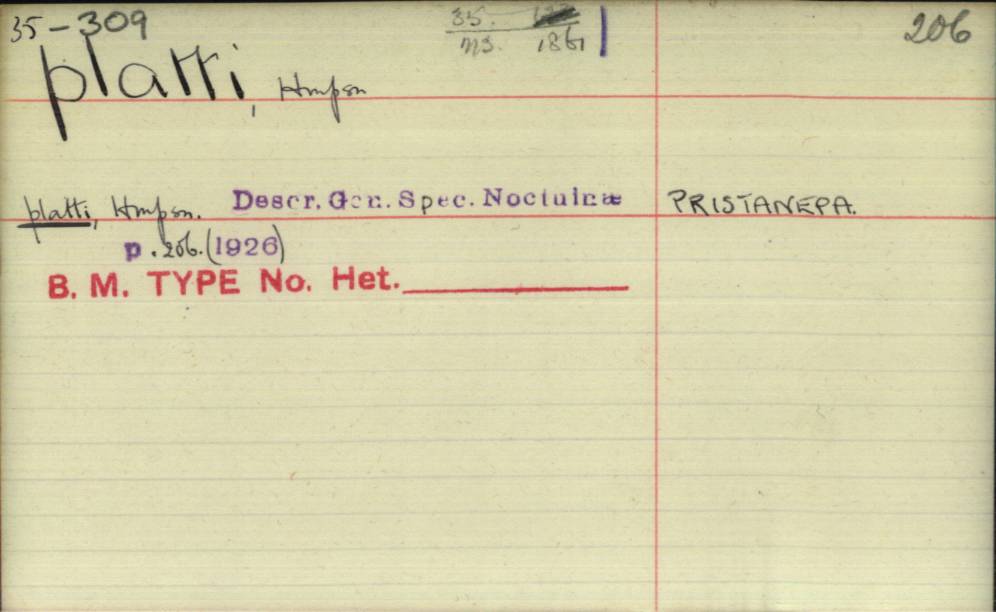 35-309
35.
ns. 1861
206
platti, Hmpsn
platti, Hmpsn. Descr. Gen. Spec. Noctuinæ PRISTANEPA.
p. 206. (1926)
B. M. TYPE No. Het.